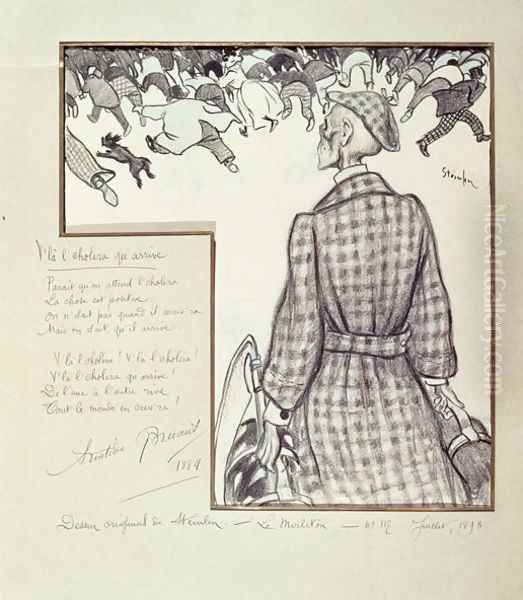 V'là l'choléra qu'arrive
Paraît qu'on attend l'choléra
La chose est positive
On n'sait pas quand il arriv'ra
Mais on sait qu'il arrive.
V'là l'choléra ! V'là l'choléra !
V'là l'choléra qu'arrive !
De l'une à l'autre rive
Tout le monde en crèv'ra !
Aristide Bruant
1884
Steinlen
Dessin original de Steinlen. — Le Mirliton — Juillet, 1893
NiceArtGallery.com